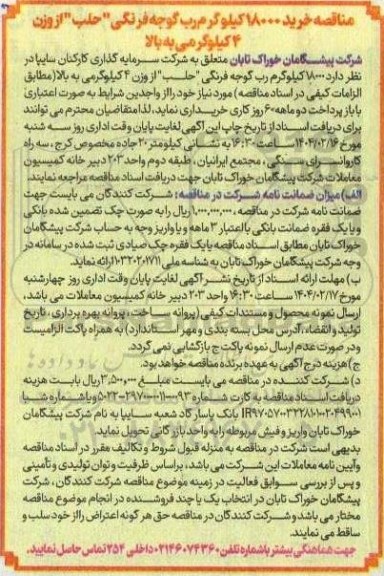 مناقصه خرید ۱۸۰۰۰ کیلوگرم رب گوجه فرنگی "حلب" از وزن
۴ کیلوگرمی به بالا
شرکت پیشگامان خوراک تابان متعلق به شرکت سرمایه گذاری کارکنان سایپا در
نظر دارد ۱۸۰۰۰ کیلوگرم رب گوجه فرنگی "حلب" از وزن ۴ کیلوگرمی به بالا (مطابق
الزامات کیفی در اسناد مناقصه) مورد نیاز خود را از واجدین شرایط به صورت اعتباری
با باز پرداخت دو ماهه ۶۰ روز کاری خریداری نماید. لذا متقاضیان محترم می توانند
برای دریافت اسناد از تاریخ چاپ این آگهی لغایت پایان وقت اداری روز سه شنبه
مورخ ۱۴۰۴/۰۲/۱۶ ساعت ۱۶:۳۰ به نشانی کیلومتر ۲۰ جاده مخصوص کرج، سه راه
کاروانسرای سنگی، مجتمع ایرانیان، طبقه دوم واحد ۲۰۳ دبیر خانه کمیسیون
معاملات شرکت پیشگامان خوراک تابان جهت دریافت اسناد مناقصه مراجعه نمایند.
الف) میزان ضمانت نامه شرکت در مناقصه: شرکت کنندگان می بایست جهت
ضمانت نامه شرکت در مناقصه، ۱,۰۰۰,۰۰۰,۰۰۰ ریال را به صورت چک تضمین شده بانکی
و یا یک فقره ضمانت بانکی با اعتبار ۳ ماهه و یا واریز وجه به حساب شرکت پیشگامان
خوراک تابان مطابق اسناد مناقصه یا یک فقره چک صیادی ثبت شده در سامانه در
وجه شرکت پیشگامان خوراک تابان به شناسه ملی ۱۰۳۲۰۲۰۱۷۱۱ ارائه نماید.
ب) مهلت ارائه اسناد از تاریخ نشر آگهی لغایت پایان وقت اداری روز چهارشنبه
مورخ ۱۴۰۴/۰۲/۱۷ ساعت ۱۶:۳۰ واحد ۲۰۳ دبیر خانه کمیسیون معاملات می باشد،
ارسال نمونه محصول و مستندات کیفی (پروانه ساخت، پروانه بهره برداری، تاریخ
تولید و انقضاء، آدرس محل بسته بندی و مهر استاندارد) به همراه پاکت الزامیست
و در صورت عدم ارسال نمونه پاکت ج بازگشایی نمی گردد.
ج) هزینه درج آگهی به عهده برنده مناقصه خواهد بود.
د) شرکت کننده در مناقصه می بایست مبلغ ۳,۵۰۰,۰۰۰ ریال بابت هزینه
دریافت اسناد مناقصه به کارت شماره و یا شماره شبا
بانک پاسارگاد شعبه سایپا به نام شرکت پیشگامان
خوراک تابان واریز و فیش مربوطه را به واحد بازرگانی تحویل نماید.
بدیهی است شرکت در مناقصه به منزله قبول شروط و تکالیف مقرر در اسناد مناقصه
و آیین نامه معاملات این شرکت می باشد، براساس ظرفیت و توان تولیدی و تأمینی
و پس از بررسی سوابق فعالیت در زمینه موضوع مناقصه شرکت کنندگان، شرکت
پیشگامان خوراک تابان در انتخاب یک یا چند فروشنده در انجام موضوع مناقصه
مختار می باشد و شرکت کنندگان در مناقصه حق هر گونه اعتراض را از خود سلب و
ساقط می نمایند.
جهت هماهنگی بیشتر با شماره تلفن ۰۲۱۴۶۰۷۴۳۶۰ داخلی ۲۵۴ تماس حاصل نمایید.